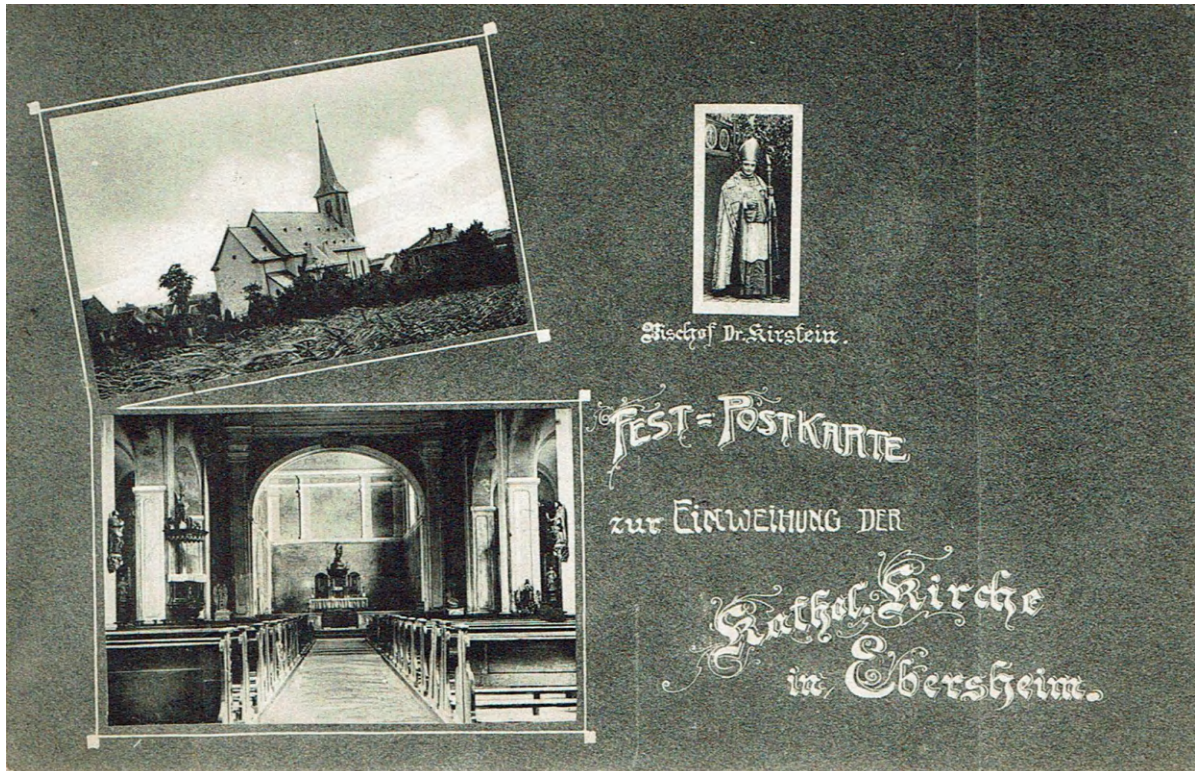 Bischof Dr. Kirstein.
FEST=POSTKARTE
zur EINWEIHUNG DER
Kathol. Kirche
in Ebersheim.